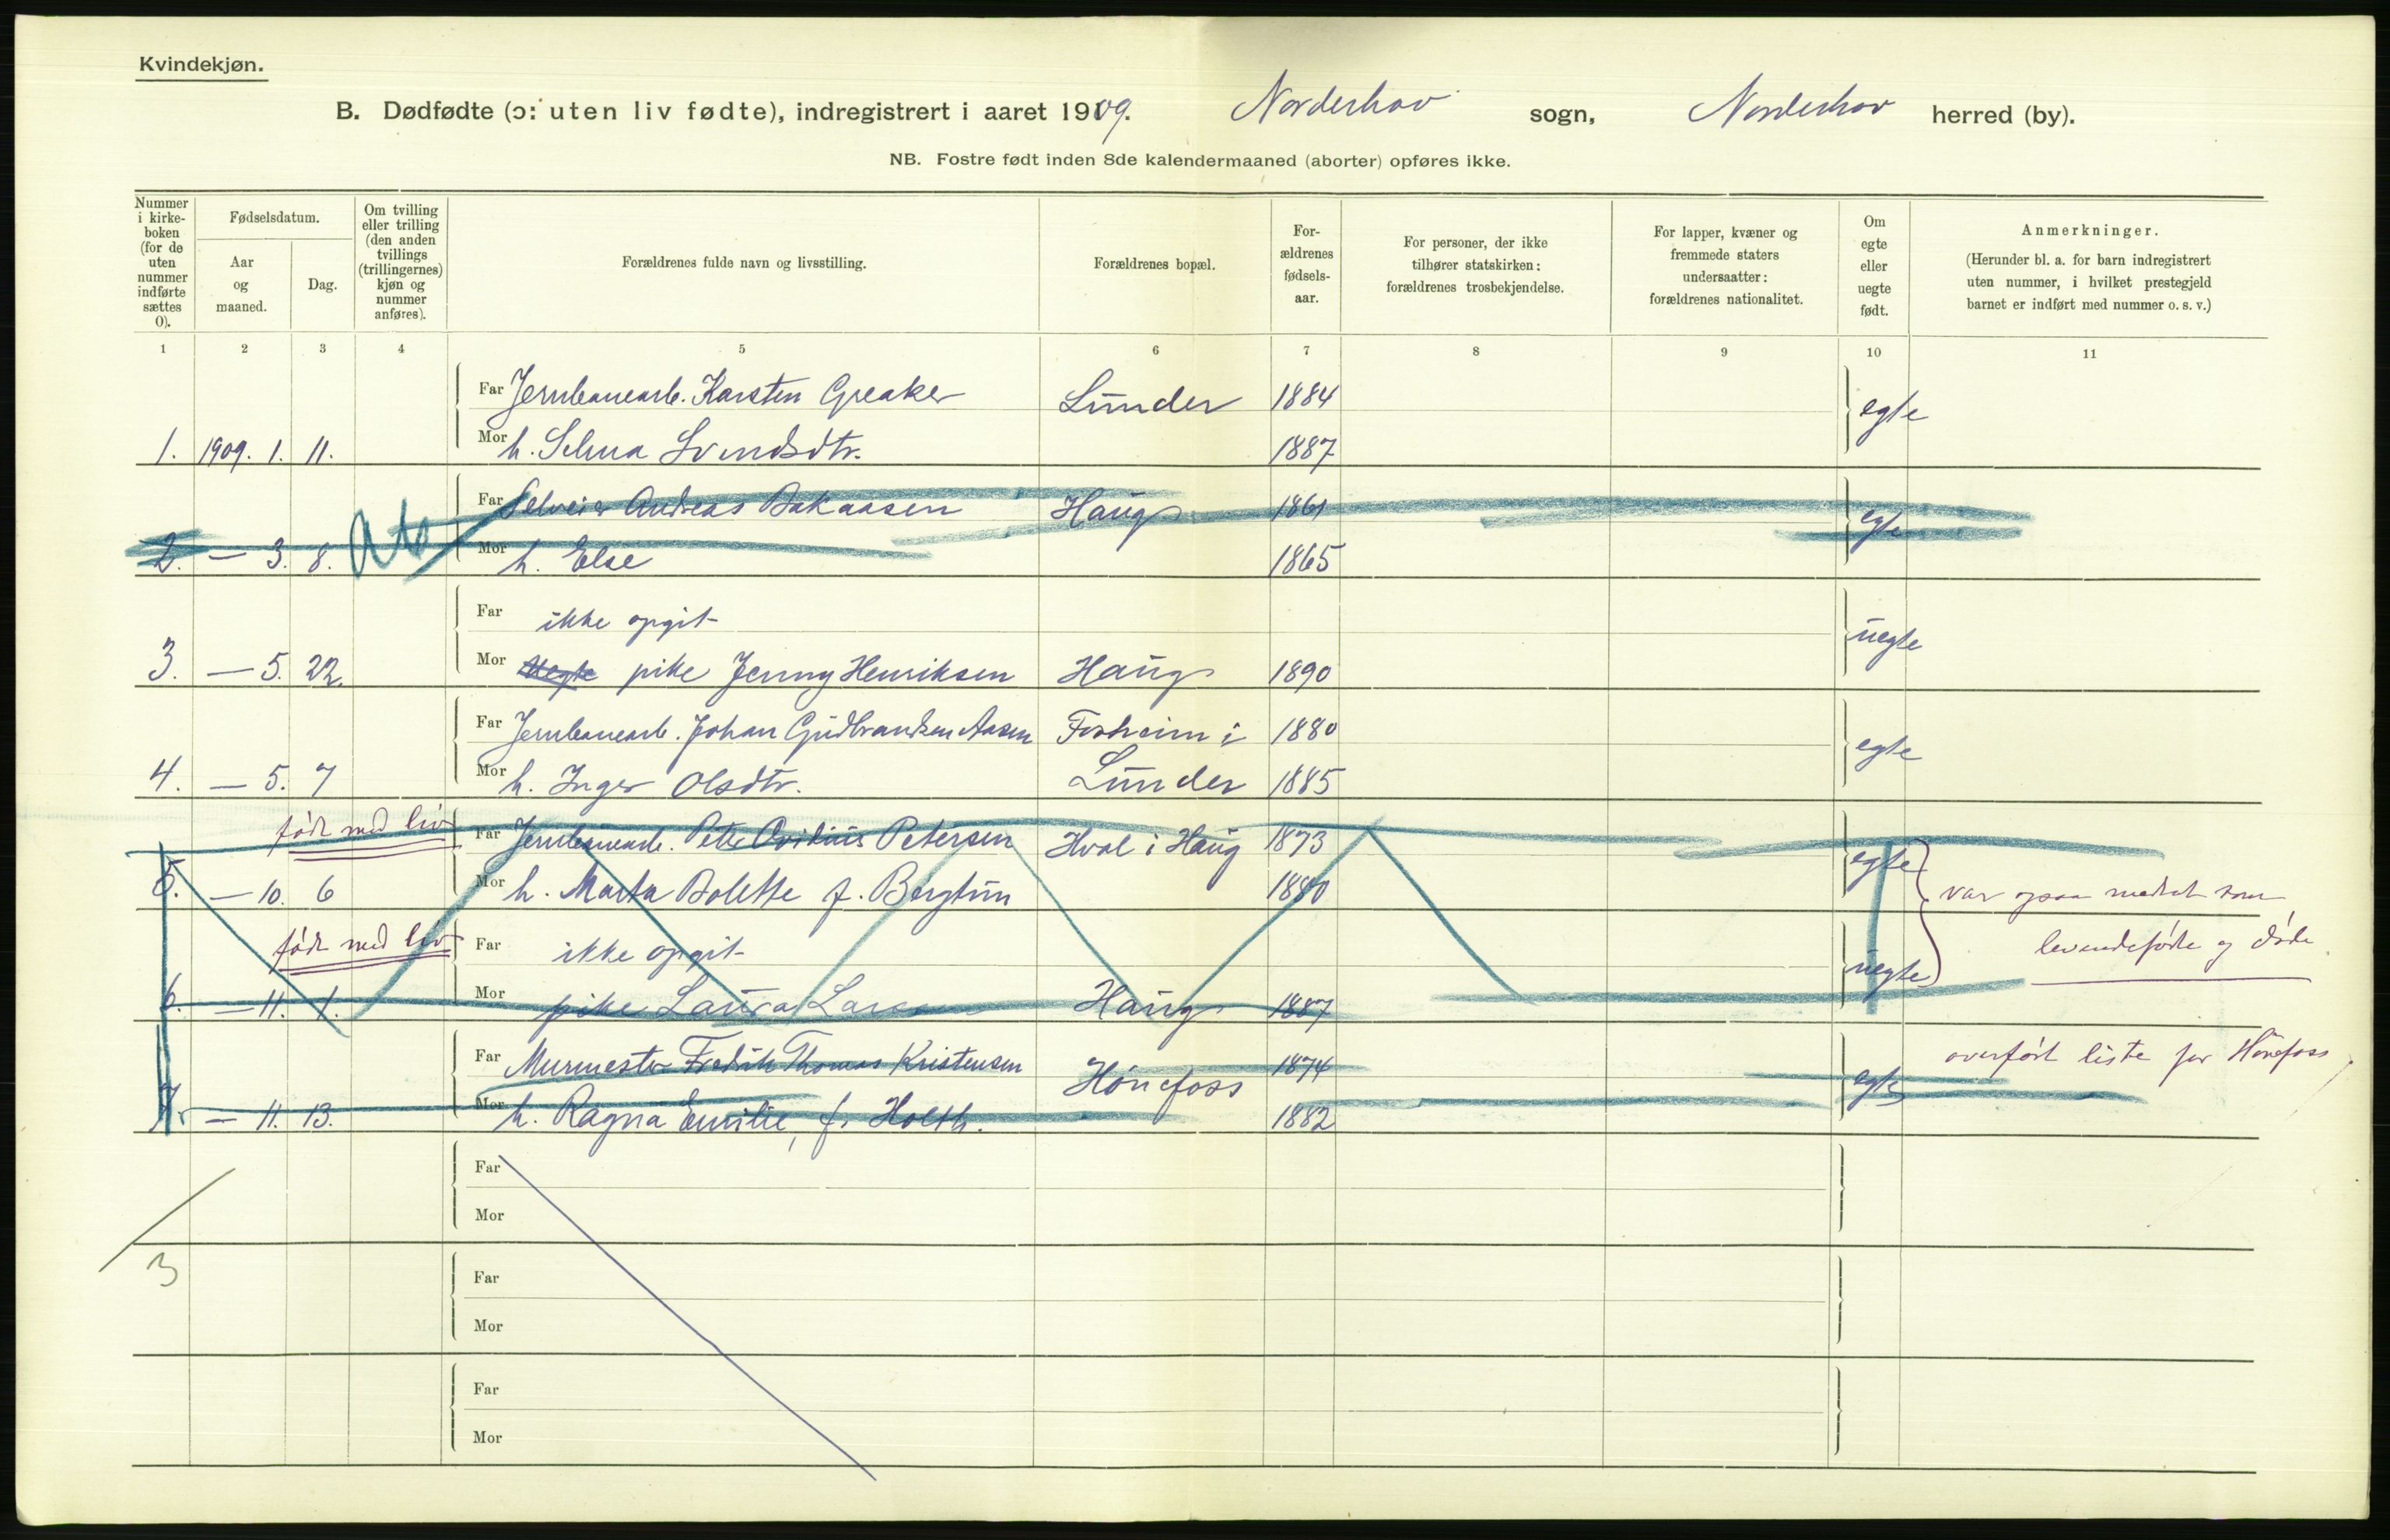 Kvindekjøn.
B. Dødfødte (ɔ: uten liv fødte), indregistrert i aaret 1909. Norderhov sogn, Norderhov herred (by).
NB. Fostre født inden 8de kalendermaaned (aborter) opføres ikke.
Nummer i kirke-boken (for de uten nummer indførte sættes 0).
Fødselsdatum.
Aar og maaned.
Dag.
Om tvilling eller trilling (den anden tvillings (trillingernes) kjøn og nummer anføres).
Forældrenes fulde navn og livsstilling.
Forældrenes bopæl.
For-ældrenes fødsels-aar.
For personer, der ikke tilhører statskirken: forældrenes trosbekjendelse.
For lapper, kvæner og fremmede staters undersaatter: forældrenes nationalitet.
Om egte eller uegte født.
Anmerkninger.
(Herunder bl. a. for barn indregistrert uten nummer, i hvilket prestegjeld barnet er indført med nummer o. s. v.)
1 2 3 4 5 6 7 8 9 10 11
Far Jernbanearb. Karsten Greaker Lunder 1884 egte
1. 1909. 1. 11. Mor h. Selma Svendsdtr. 1887
Far Selveier Andreas Bakaasen Haug 1861 egte
2. — 3. 8. Mor h. Else 1865
Far ikke opgit uegte
3. — 5. 22. Mor Uegte pike Jenny Henriksen Haug 1890
Far Jernbanearb. Johan Gudbrandsen Aasen Fosheim i 1880 egte
4. — 5. 7 Mor h. Inger Olsdtr. Lunder 1885
født med liv Far Jernbanearb. Peter Ovidius Petersen Hval i Haug 1873 egte
5. — 10. 6 Mor h. Marta Bolette f. Bergtun 1880 var ogsaa medtat som
født med liv Far ikke opgit levendefødte og døde
6. — 11. 1. Mor pike Laura Larsen Haug 1887 uegte
Far Murmester Fredrik Thomas Kristensen Hönefoss 1874 egte overført liste for Hönefoss
7. — 11. 13. Mor h. Ragna Emilie, f. Holth. 1882
Far
Mor
3
Far
Mor
Far
Mor